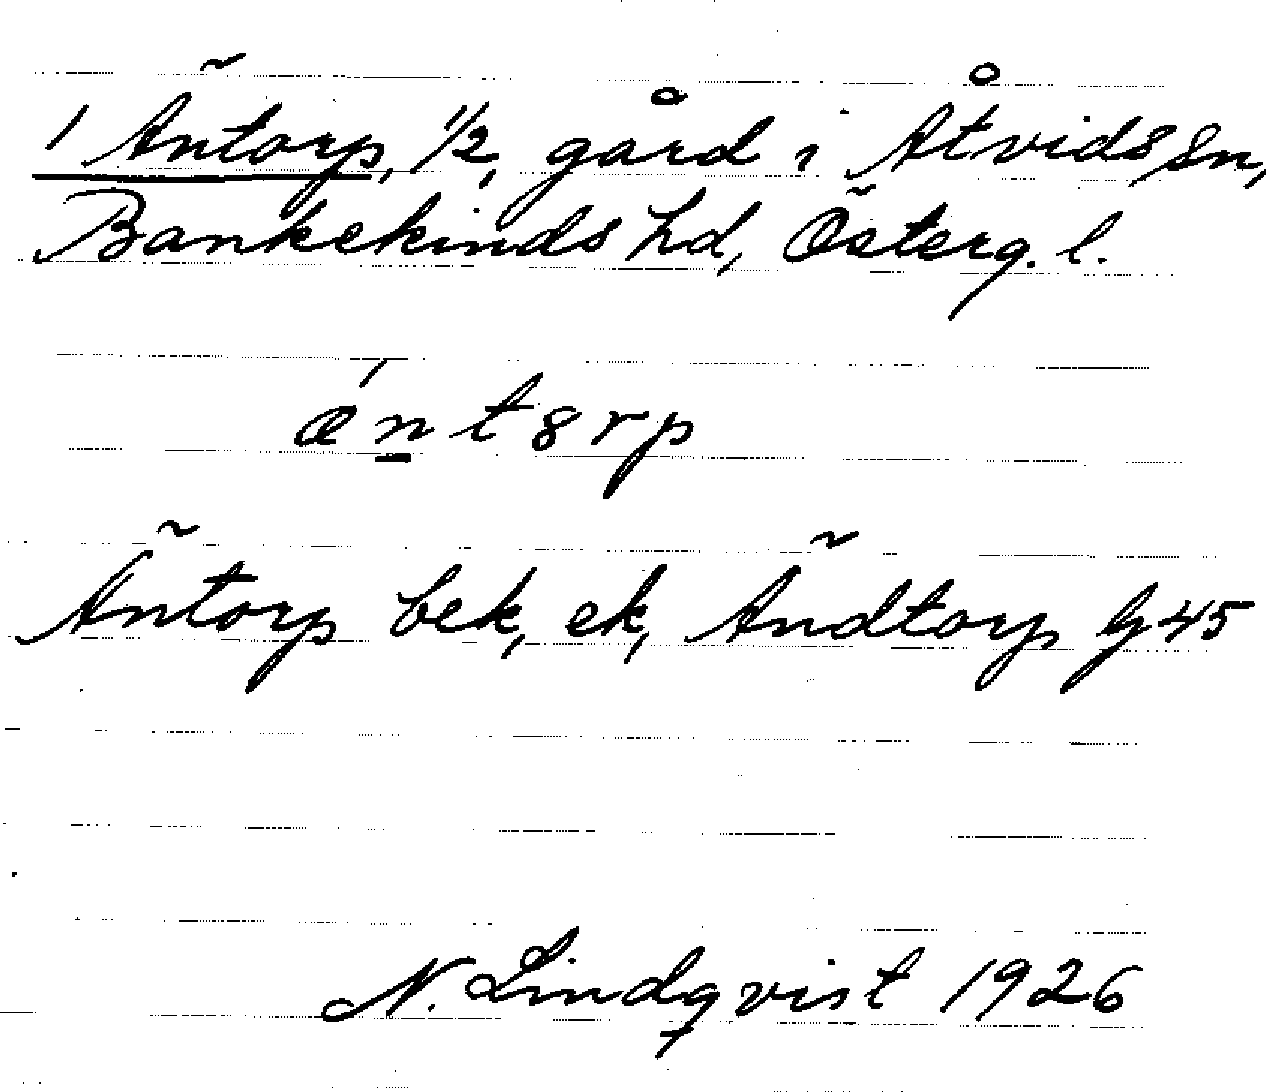 1 Äntorp, 1/2, gård i Åtvids sn,
Bankekinds hd, Österg. l.
ǽntɞrp
Äntorp bek, ek, Ändtorp G 45
N. Lindqvist 1926